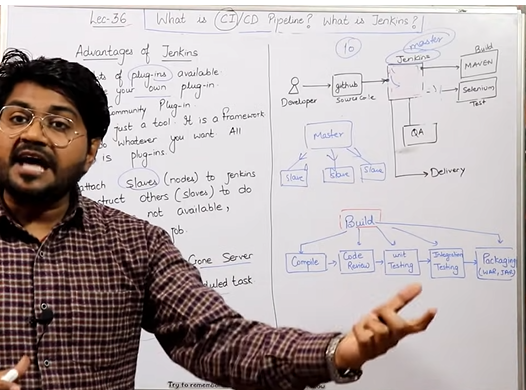 Lec-36
What is CI/CD Pipeline? What is Jenkins?
Advantages of Jenkins
ts of plug-ins available
e your own plug-in
ommunity Plug-in
just a tool. It is a framework
o whatever you want. All
is plug-ins.
attach slaves (nodes) to jenkins
truct others (slaves) to do
not available,
job
Crone Server
duled task
Try to remember
10
master
Jenkins
Developer
github
Source Code
Build
MAVEN
Selenium
Test
QA
Delivery
Master
Slave
Slave
Slave
Build
Compile
Code Review
unit Testing
Integration Testing
Packaging (WAR, JAR)